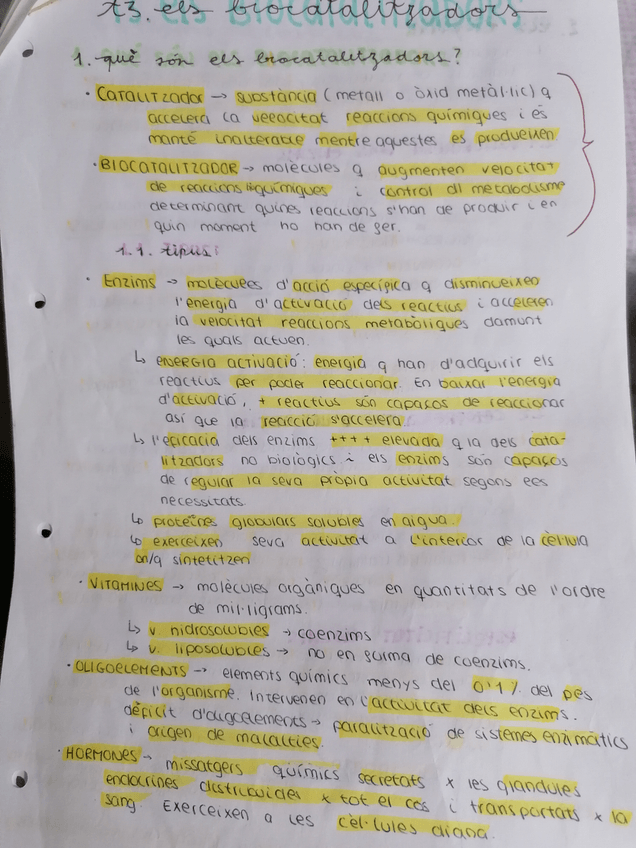 t3. els biocatalitzadors
1. què són els biocatalitzadors?
· CATALITZADOR → substància (metall o òxid metàl·lic) q
accelera la velocitat reaccions químiques i és
manté inalterable mentre aquestes es produeixen
· BIOCATALITZADOR → molècules q augmenten velocitat
de reaccions bioquímiques i control dl metabolisme
determinant quines reaccions s'han de produir i en
quin moment ho han de fer.
1.1. tipus:
· Enzims → molècules d'acció específica q disminueixen
l'energia d'activació dels reactius i acceleren
la velocitat reaccions metabòliques damunt
les quals actuen.
↳ energia activació: energia q han d'adquirir els
reactius per poder reaccionar. En baixar l'energia
d'activació, + reactius són capaços de reaccionar
així que la reacció s'accelera.
↳ l'eficàcia dels enzims ++++ elevada q la dels cata-
litzadors no biològics i els enzims són capaços
de regular la seva pròpia activitat segons les
necessitats.
↳ proteïnes globulars solubles en aigua.
↳ exerceixen seva activitat a l'interior de la cèl·lula
on/q sintetitzen
· VITAMINES → molècules orgàniques en quantitats de l'ordre
de mil·ligrams.
↳ v. hidrosolubles → coenzims
↳ v. liposolubles → no en forma de coenzims.
· OLIGOELEMENTS → elements químics menys del 0'1% del pes
de l'organisme. Intervenen en l'activitat dels enzims.
dèficit d'oligoelements → paralització de sistemes enzimàtics
i origen de malalties.
· HORMONES → missatgers químics secretats x les glàndules
endocrines distribuïdes x tot el cos i transportats x la
sang. Exerceixen a les cèl·lules diana.